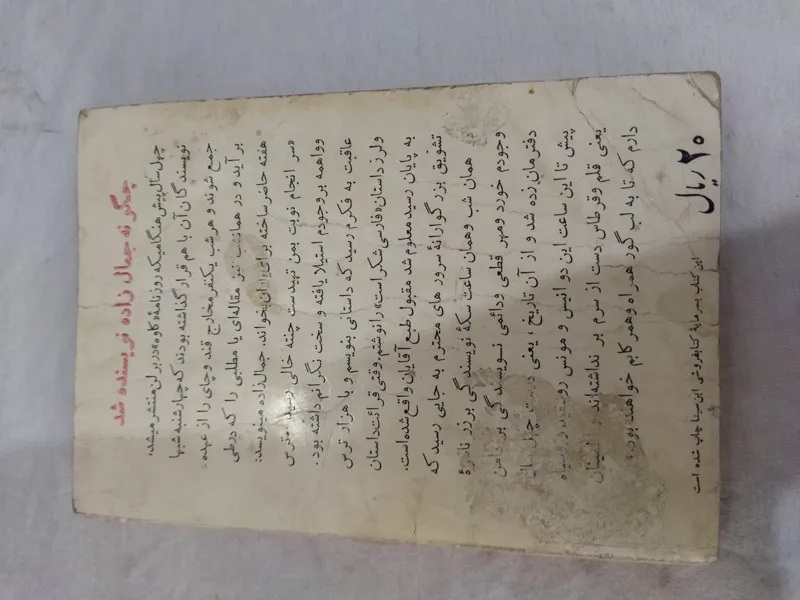 چگونه جمال زاده نویسنده شد
چهل سال پیش هنگامیکه روزنامهٔ «کاوه» در برلن منتشر میشد،
نویسندگان آن با هم قرار گذاشته بودند که چهارشنبه شبها
جمع شوند و هر شب یکنفر مخارج قند و چای را از عهده
بر آید و در همانشب نیز مقاله‌ای یا مطلبی را که در طی
هفته حاضر ساخته برای یاران بخواند. جمال‌زاده مینویسد:
«سر انجام نوبت بمن تهیدست چنته خالی رسید. ترس
و واهمه بر وجودم استیلا یافته و سخت نگرانم داشته بود.
عاقبت به فکرم رسید که داستانی بنویسم و با هزار ترس
و لرز داستان «فارسی شکر است» را نوشتم. وقتی قرائت داستان
به پایان رسید معلوم شد مقبول طبع آقایان واقع شده‌است.
تشویق بزرگوارانهٔ سرورهای محترم به جایی رسید که
همان شب و همان ساعت سکهٔ نویسندگی بر زر ناسرهٔ
وجودم خورد و مهر قطعی و دائمی نویسندگی بر دامن
دفترمان زده شد و از آن تاریخ، یعنی درست چهل سال
پیش تا این ساعت این دو انیس و مونس روسفید و سیاه
یعنی قلم و قرطاس دست از سرم بر نداشته‌اند و اطمینان
دارم که تا به لب گور همراه و همرکابم خواهند بود.»
۲۰ ریال
این کتاب بسرمایهٔ کتابفروشی ابن سینا چاپ شده است